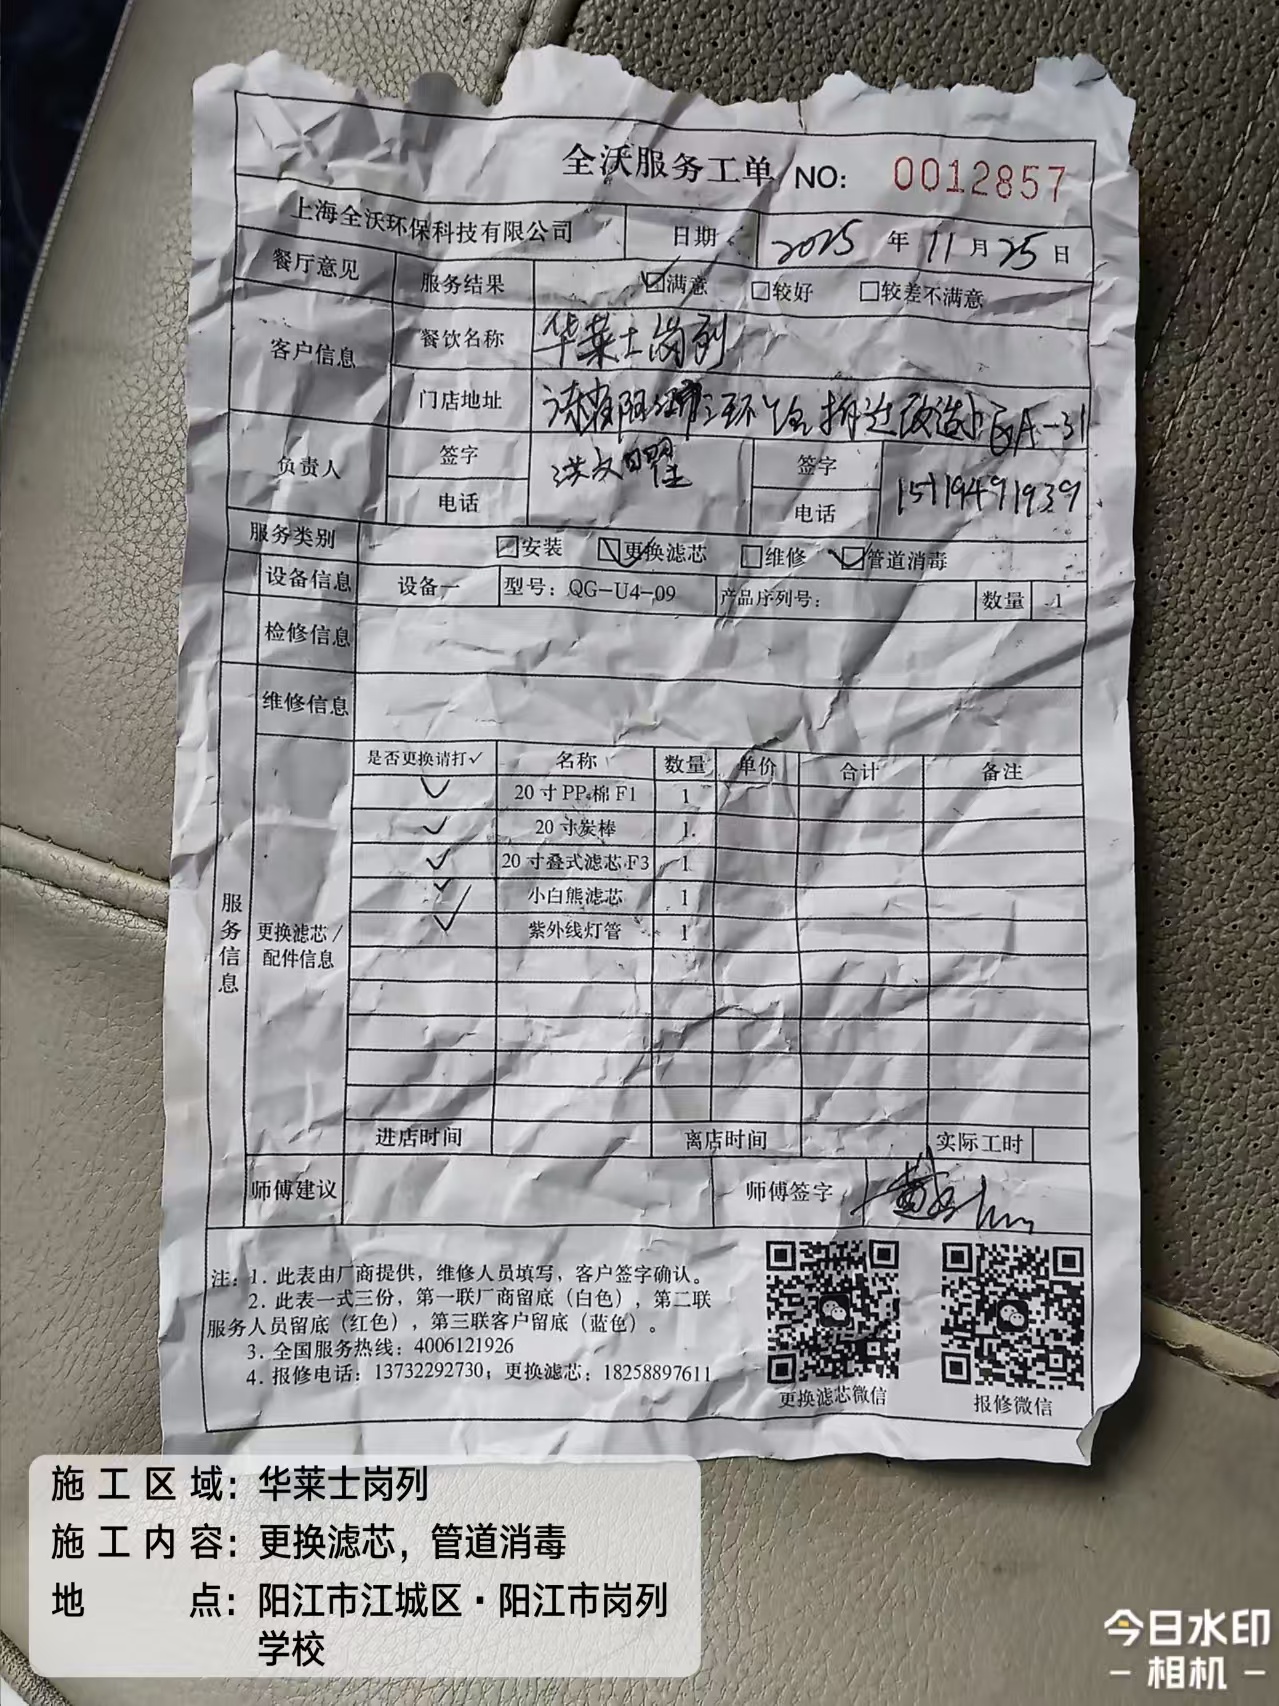 全沃服务工单 NO: 0012857
上海全沃环保科技有限公司 日期 2025 年 11 月 25 日
餐厅意见 服务结果 ☑满意 □较好 □较差不满意
客户信息 餐饮名称 华莱士岗列
门店地址 阳江市三环 拆迁改造 区A-31
负责人 签字 洪文曜 签字
电话 电话 15119491939
服务类别 ☑安装 ☑更换滤芯 □维修 ☑管道消毒
设备信息 设备一 型号: QG-U4-09 产品序列号: 数量 1
检修信息
维修信息
服务信息
更换滤芯/配件信息
是否更换请打✓ 名称 数量 单价 合计 备注
✓ 20寸PP棉F1 1
✓ 20寸炭棒 1
✓ 20寸叠式滤芯F3 1
✓ 小白熊滤芯 1
✓ 紫外线灯管 1
进店时间 离店时间 实际工时
师傅建议 师傅签字
注: 1. 此表由厂商提供，维修人员填写，客户签字确认。
2. 此表一式三份，第一联厂商留底（白色），第二联
服务人员留底（红色），第三联客户留底（蓝色）。
3. 全国服务热线: 4006121926
4. 报修电话: 13732292730; 更换滤芯: 18258897611
更换滤芯微信 报修微信
施工区域: 华莱士岗列
施工内容: 更换滤芯，管道消毒
地点: 阳江市江城区·阳江市岗列
学校
今日水印
－相机－